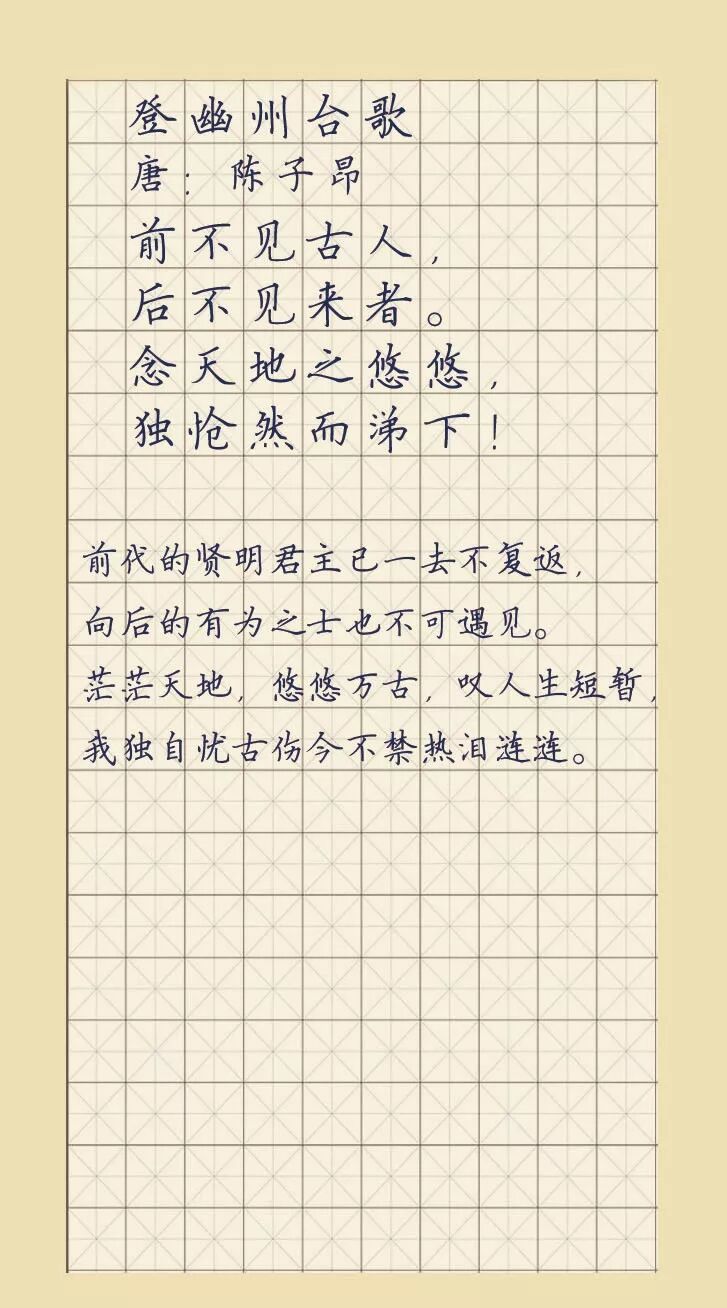 登幽州台歌
唐：陈子昂
前不见古人，
后不见来者。
念天地之悠悠，
独怆然而涕下！
前代的贤明君主已一去不复返，
向后的有为之士也不可遇见。
茫茫天地，悠悠万古，叹人生短暂，
我独自忧古伤今不禁热泪涟涟。